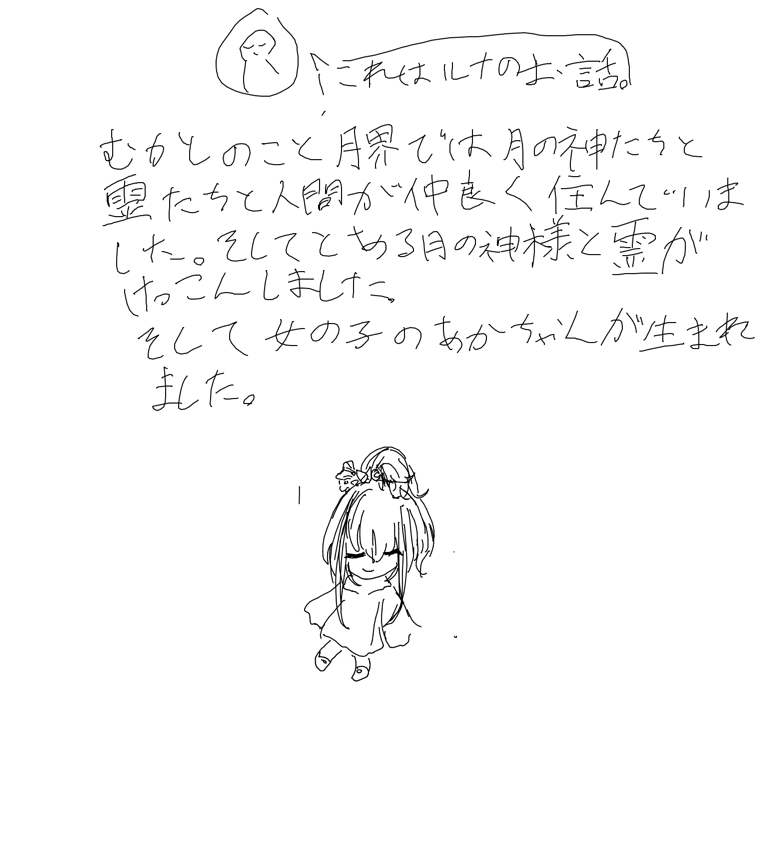 これはルナのお話。
むかしのこと月界では月の神たちと
霊たちと人間が仲良く住んでいま
した。そしてとある月の神様と霊が
けっこんしました。
そして女の子のあかちゃんが生まれ
ました。